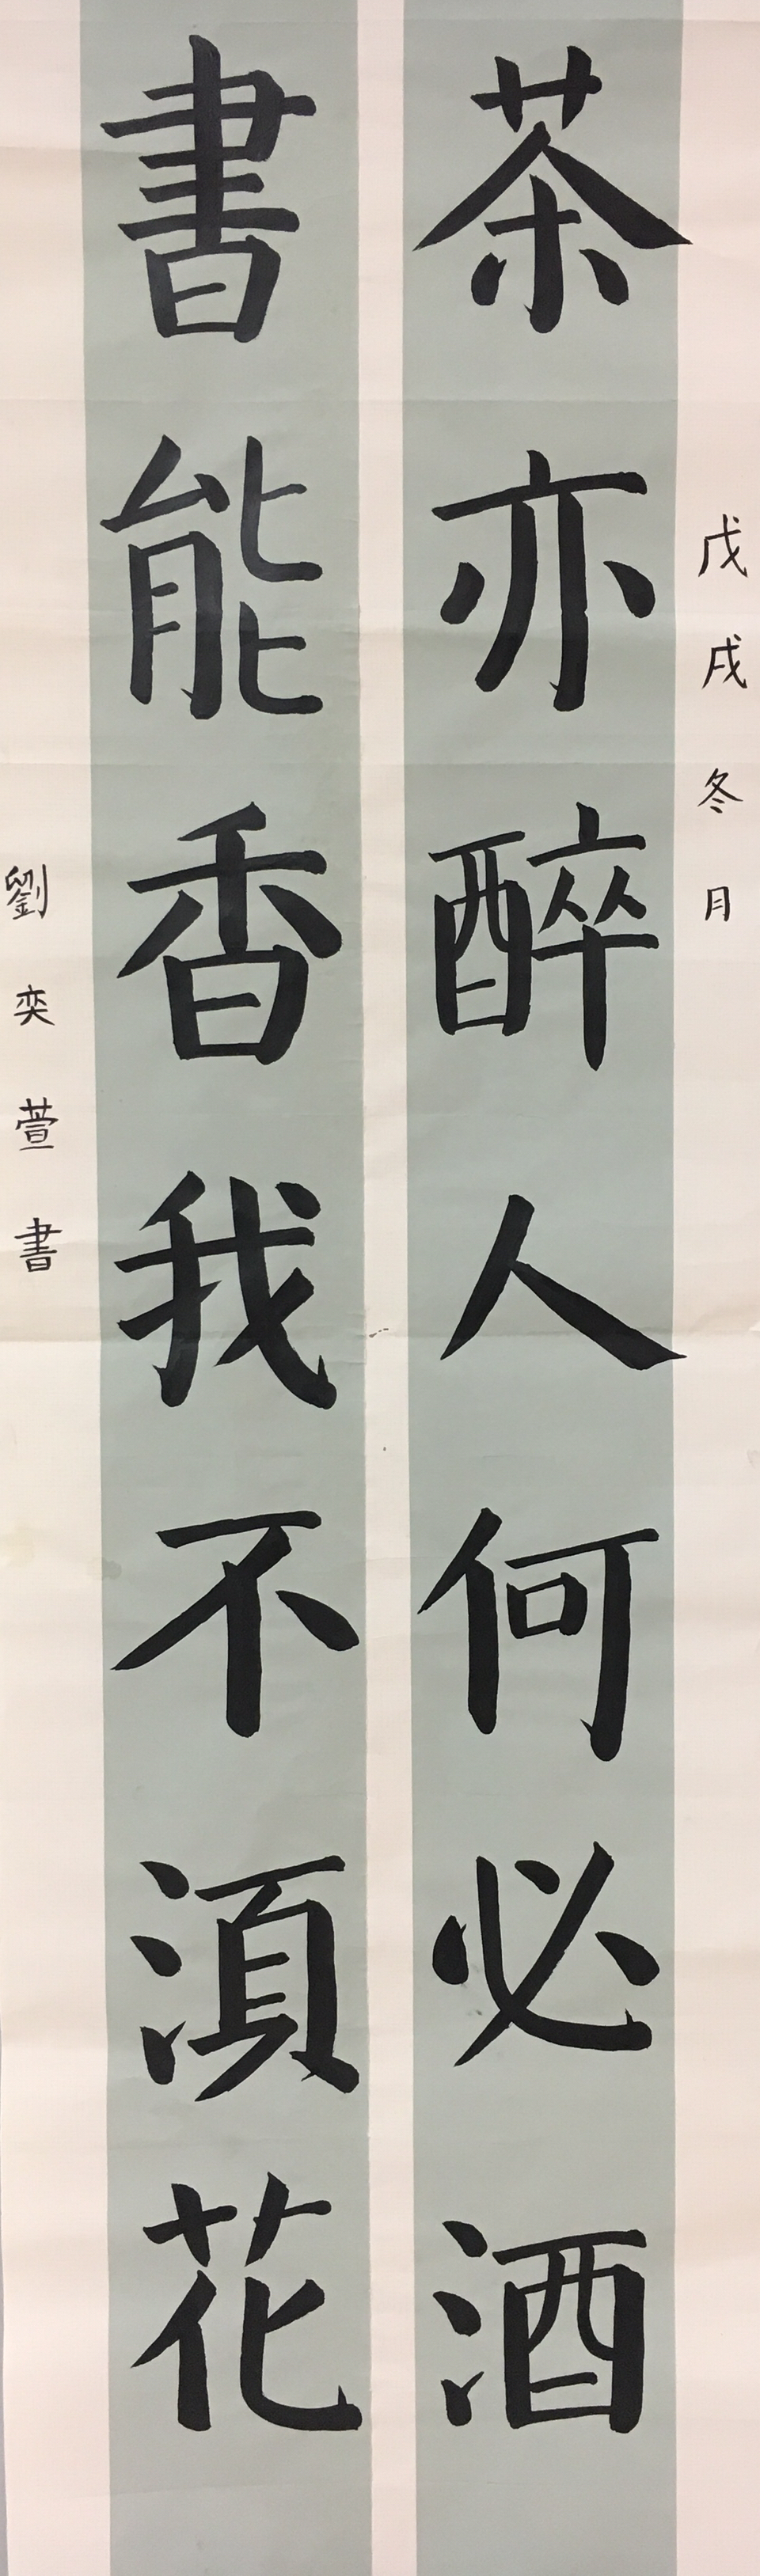 戊戌冬月
茶亦醉人何必酒
書能香我不湏花
劉奕萱書